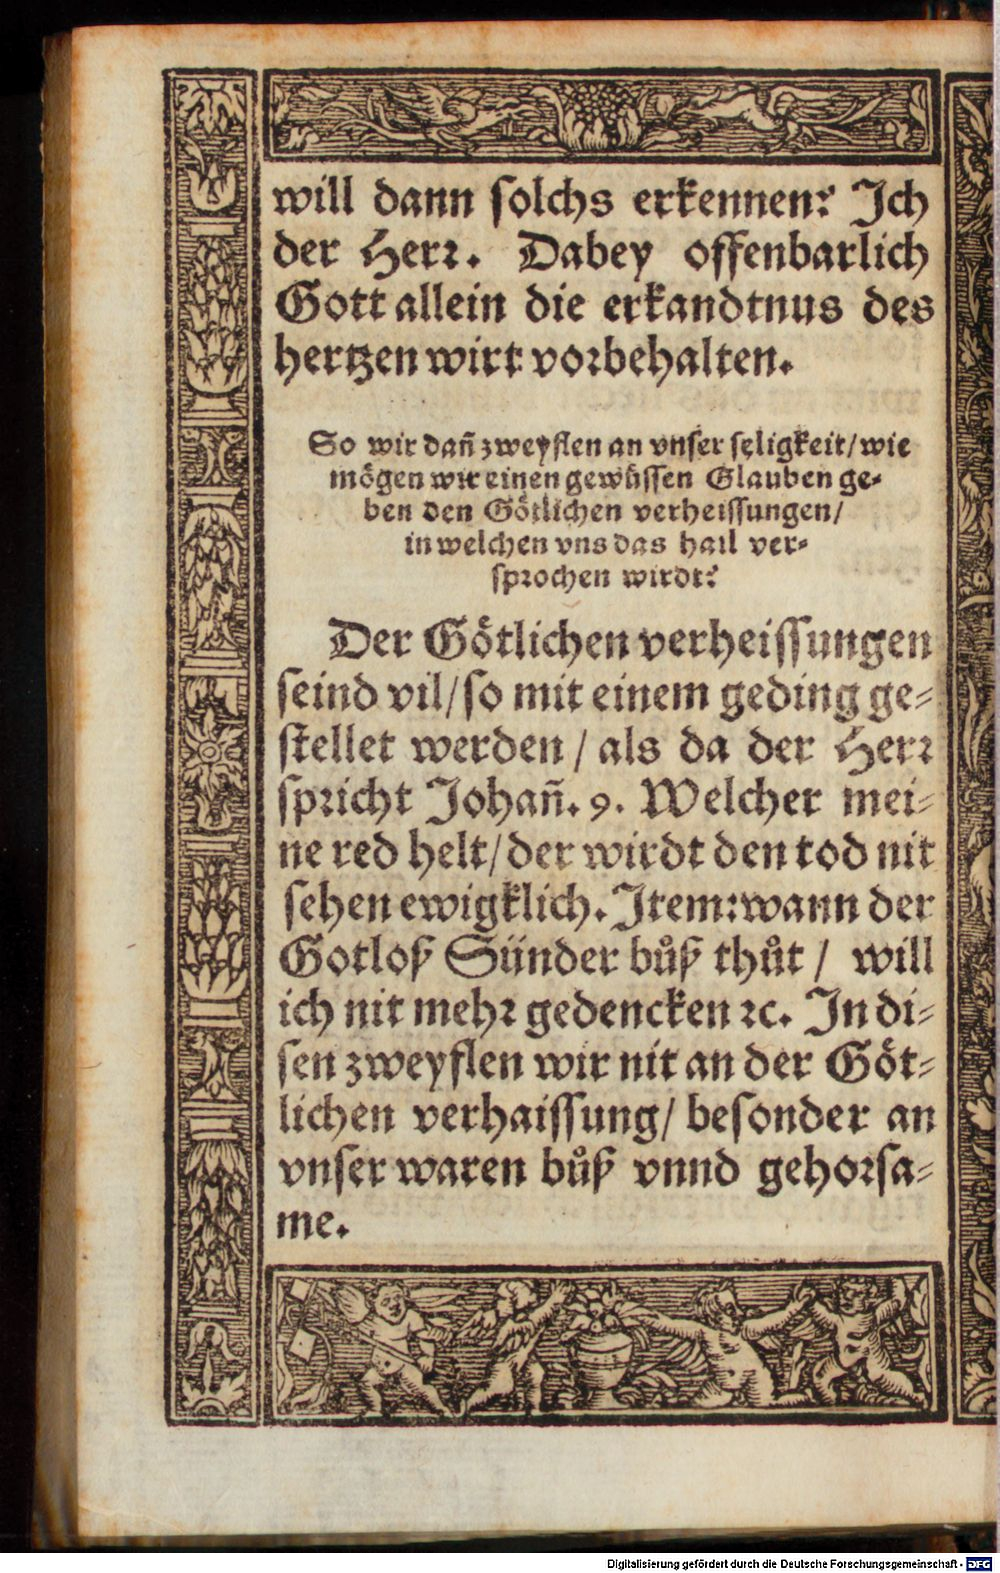 will dann solchs erkennen? Ich
der Herr. Dabey offenbarlich
Gott allein die erkandtnus des
hertzen wirt vorbehalten.
So wir dañ zweyflen an vnser seligkeit/ wie
mögen wir einen gewüssen Glauben ge-
ben den Götlichen verheissungen/
in welchen vns das hail ver-
sprochen wirdt?
Der Götlichen verheissungen
seind vil/ so mit einem geding ge-
stellet werden / als da der Herr
spricht Johañ. 9. Welcher mei-
ne red helt/ der wirdt den tod nit
sehen ewigklich. Item: wann der
Gotloß Sünder bůß thůt / will
ich nit mehr gedencken ꝛc. In di-
sen zweyflen wir nit an der Göt-
lichen verhaissung/ besonder an
vnser waren bůß vnnd gehorsa-
me.
Digitalisierung gefördert durch die Deutsche Forschungsgemeinschaft - DFG